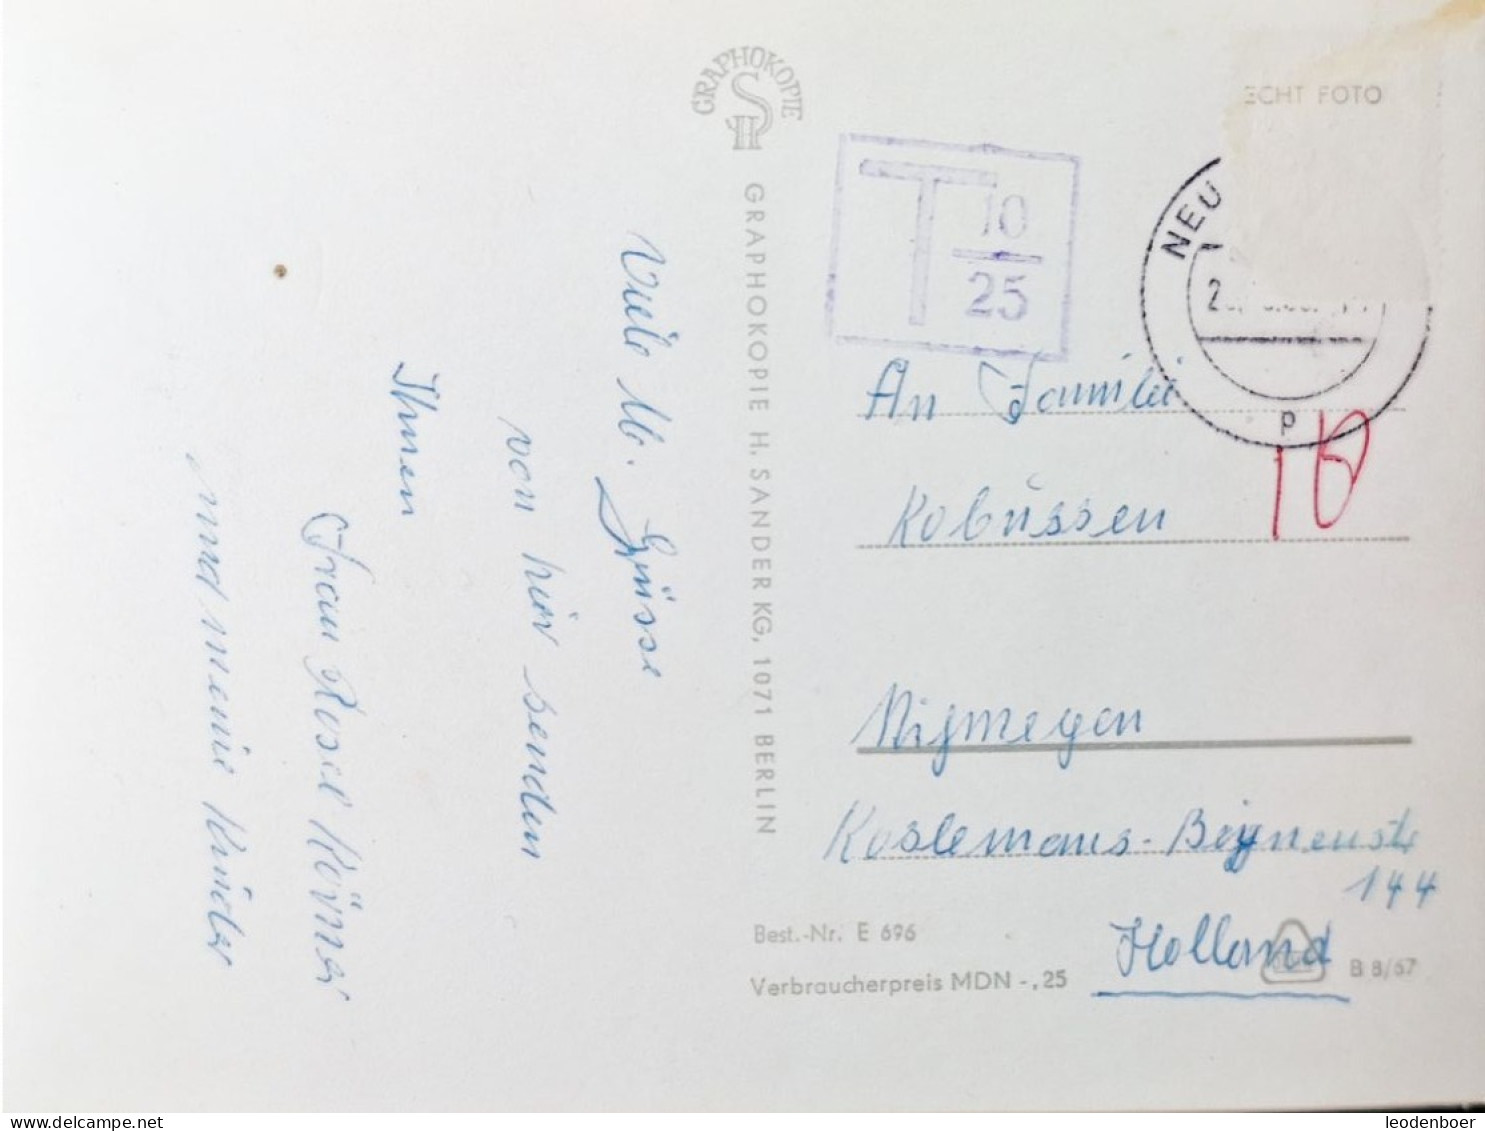 GRAPHOKOPIE
SH
GRAPHOKOPIE H. SANDER KG, 1071 BERLIN
ECHT FOTO
T 10
25
NEU
p
10
Viele lb. Grüsse
von hier senden
Ihnen
Frau Rosel Körner
und meine Kinder
An Familie
Kobüssen
Nijmegen
Koslemans-Beynenstr
144
Holland
Best.-Nr. E 696
Verbraucherpreis MDN -,25
B 8/67
leodenboer